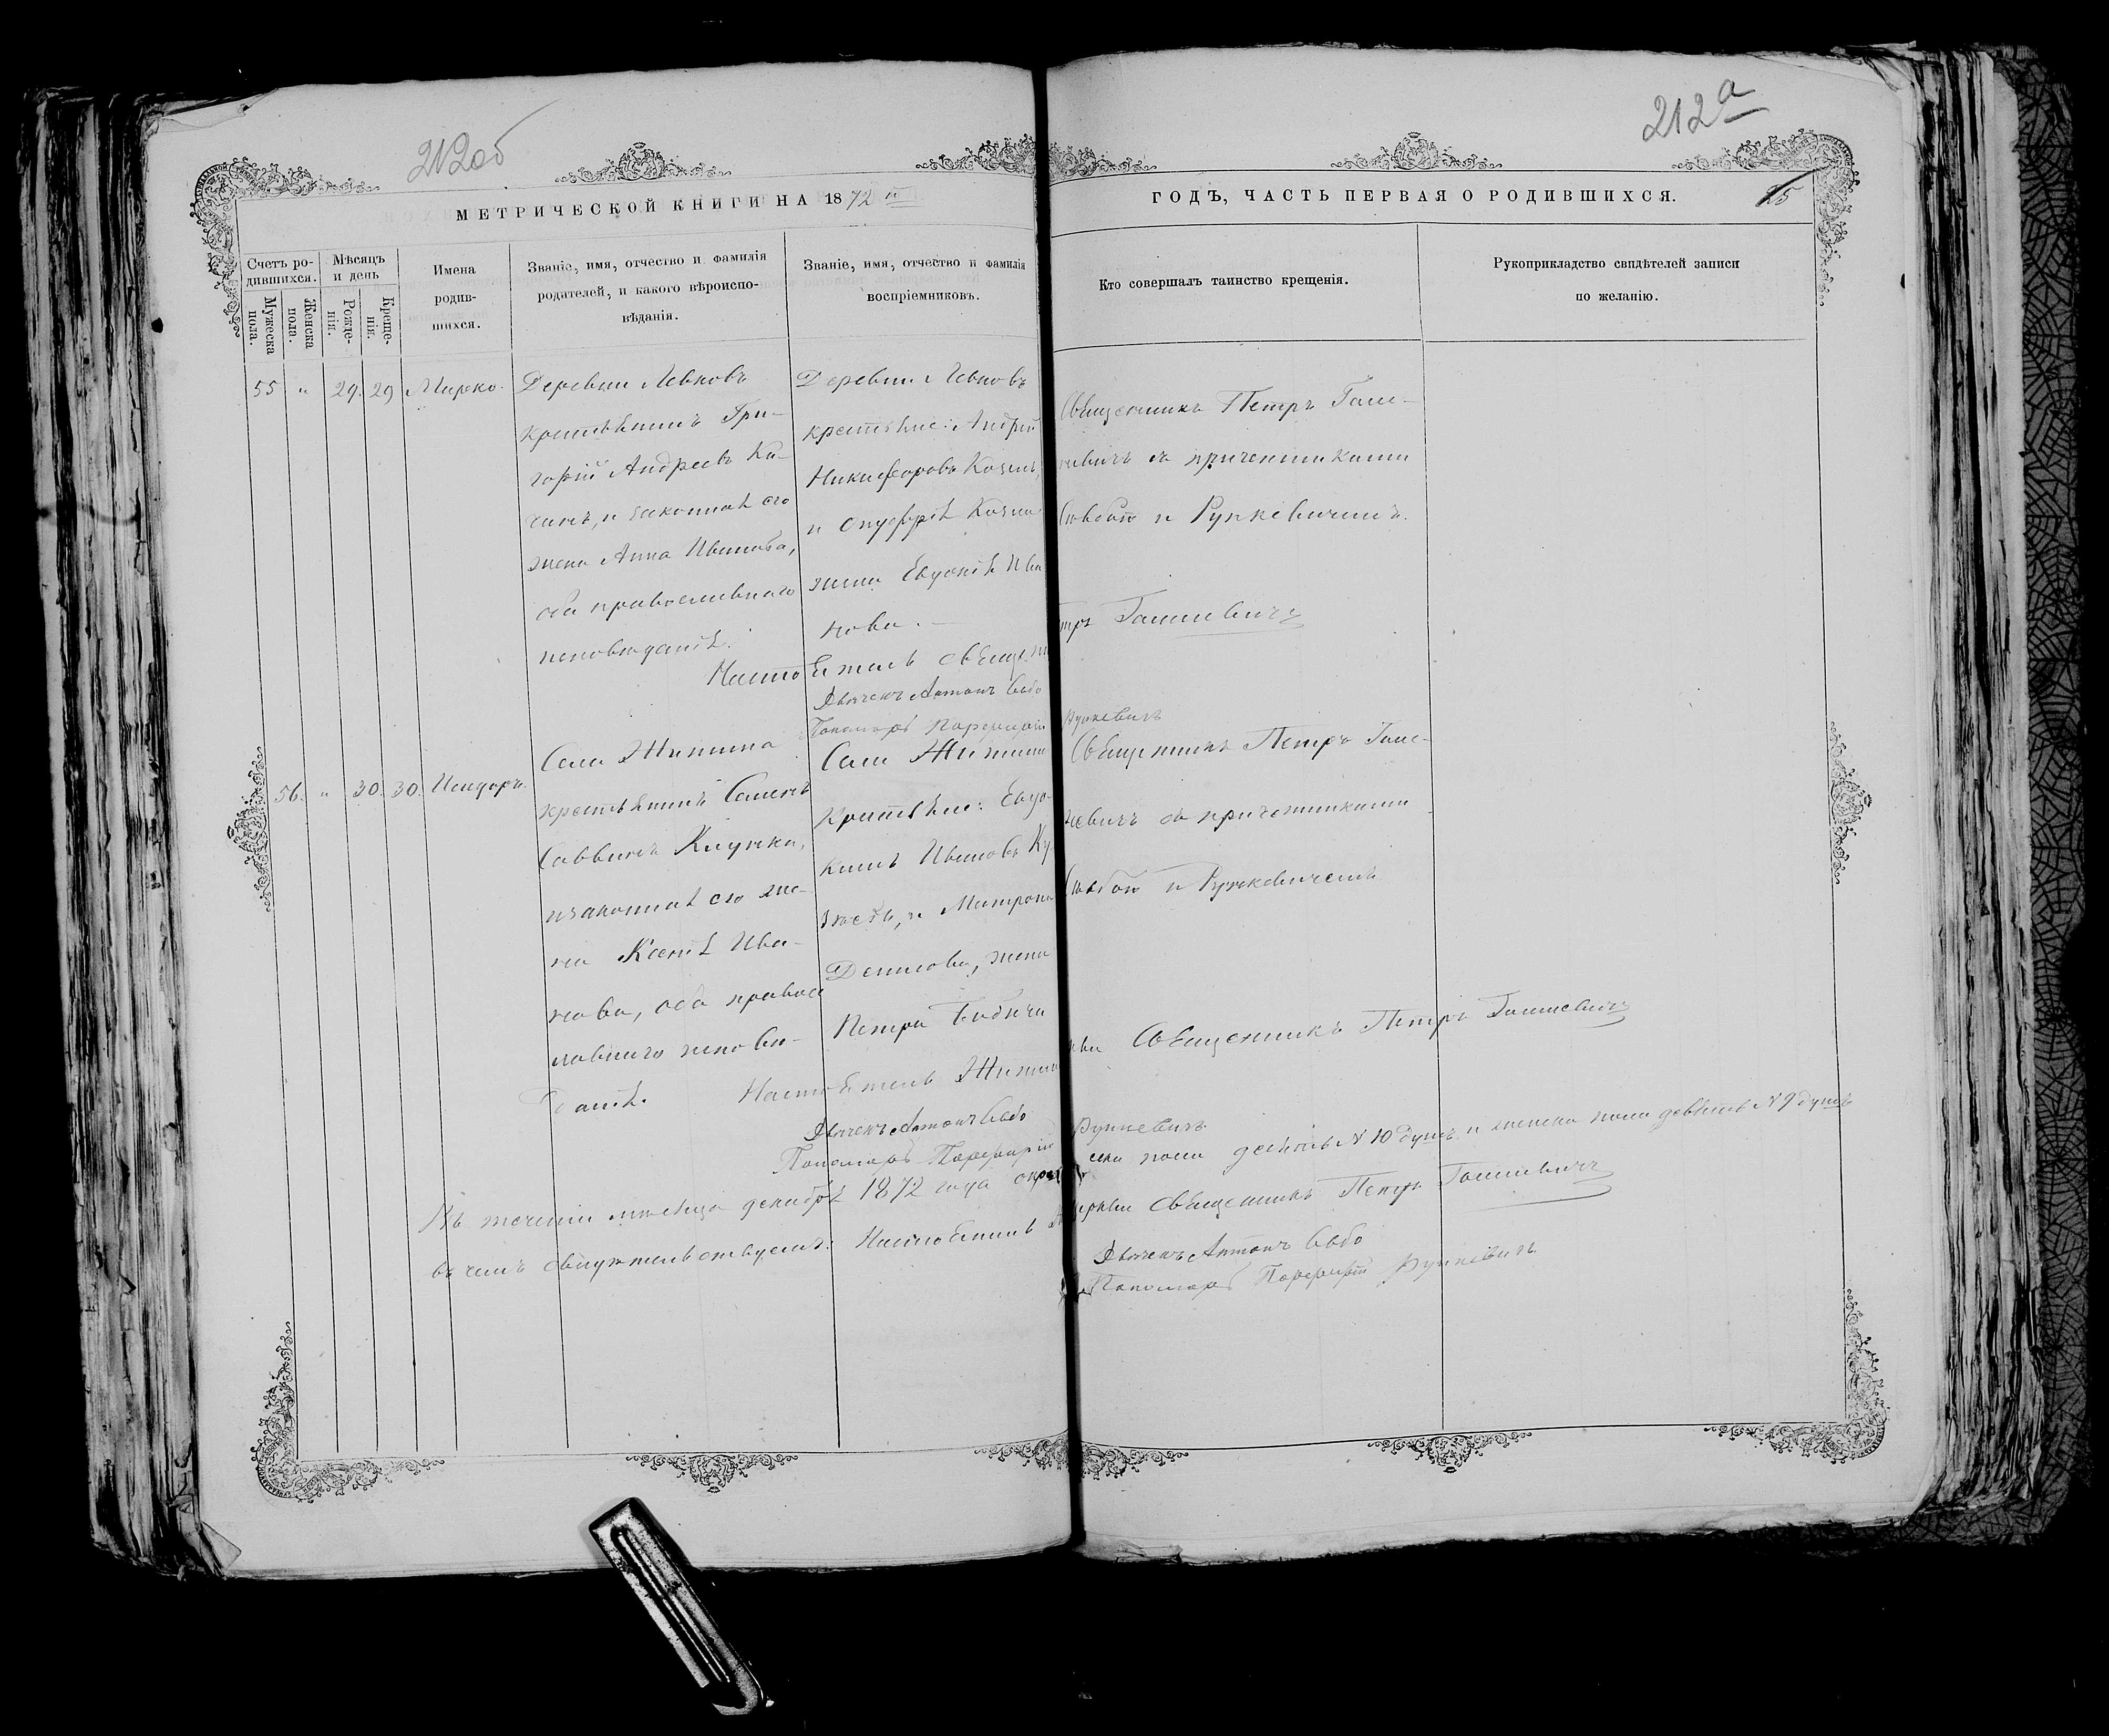 212об
212а
МЕТРИЧЕСКОЙ КНИГИ НА 1872 й
ГОДЪ, ЧАСТЬ ПЕРВАЯ О РОДИВШИХСЯ.
Счетъ ро-
дившихся.
Мужеска
пола.
Женска
пола.
Мѣсяцъ
и день
Рожде-
нія.
Креще-
нія.
Имена
родив-
шихся.
Званіе, имя, отчество и фамилія
родителей, и какого вѣроиспо-
вѣданія.
Званіе, имя, отчество и фамилія
воспріемниковъ.
Кто совершалъ таинство крещенія.
Рукоприкладство свидѣтелей записи
по желанію.
55 " 29. 29 Марко.
Деревни Левковъ
крестьянинъ Гри-
горій Андреевъ Ка-
и законная его
жена Анна Иванова,
оба православнаго
исповѣданія.
Деревни Левковъ
крестьяне: Андрей
Никифоровъ
и Онуфрія
жена Евдокія Ива
нова.
Священникъ Петръ
съ причетниками
и Рупкевичемъ.
Настоятель Священ
Дьячекъ Антонъ
Пономарь Порфирій
Рупкевичъ
56. " 30. 30. Исидоръ.
Села Житина
крестьянинъ Семенъ
Саввинъ
и законная его же-
на Ксенія Ива-
нова, оба правос
лавнаго исповѣ-
данія.
Села Житина
Крестьяне: Евдо-
кимъ Ивановъ
и Матрона
Денисова, жена
Петра
Священникъ Петръ
съ причетниками
и Рупкевичемъ
Настоятель Житин
Священникъ Петръ
Дьячекъ Антонъ
Пономарь Порфирій
Рупкевичъ
Въ теченіи мѣсяца декабря 1872 года
ска пола десять № 10 душъ и женска пола девять № 9 душъ
въ чемъ свидѣтельствуемъ: Настоятель
церкви Священникъ Петръ
Дьячекъ Антонъ
Пономарь Порфирій Рупкевичъ